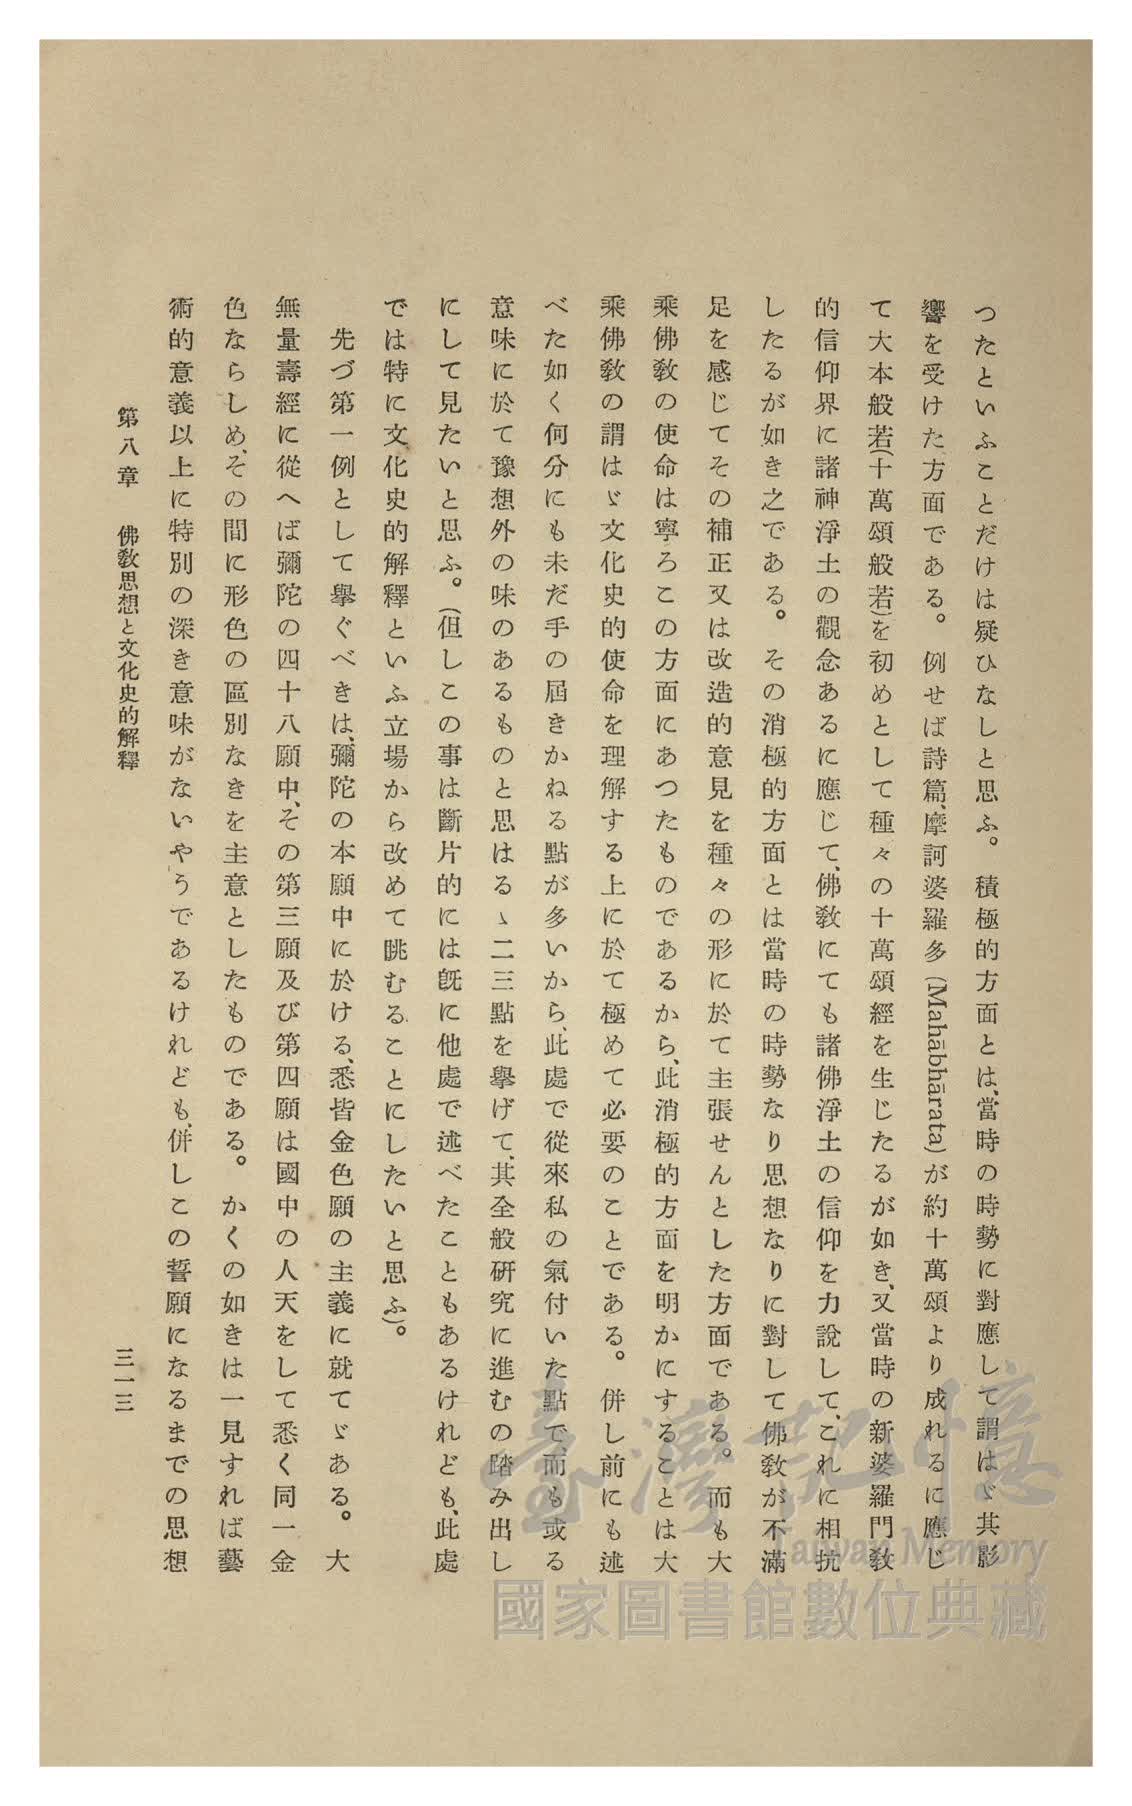 つたといふことだけは疑ひなしと思ふ。積極的方面とは、當時の時勢に對應して謂はゞ其影
響を受けた方面である。例せば詩篇、摩訶婆羅多(Mahābhārata)が約十萬頌より成れるに應じ
て大本般若(十萬頌般若)を初めとして種々の十萬頌經を生じたるが如き、又當時の新婆羅門敎
的信仰界に諸神淨土の觀念あるに應じて、佛敎にても諸佛淨土の信仰を力說して、これに相抗
したるが如き之である。その消極的方面とは當時の時勢なり思想なりに對して佛敎が不滿
足を感じてその補正又は改造的意見を種々の形に於て主張せんとした方面である。而も大
乘佛敎の使命は寧ろこの方面にあつたものであるから、此消極的方面を明かにすることは大
乘佛敎の謂はゞ文化史的使命を理解する上に於て極めて必要のことである。併し前にも述
べた如く何分にも未だ手の屆きかねる點が多いから、此處で從來私の氣付いた點で、而も或る
意味に於て豫想外の味のあるものと思はるゝ二三點を擧げて、其全般硏究に進むの踏み出し
にして見たいと思ふ。(但しこの事は斷片的には旣に他處で述べたこともあるけれども、此處
では特に文化史的解釋といふ立場から改めて眺むることにしたいと思ふ)。
先づ第一例として擧ぐべきは、彌陀の本願中に於ける、悉皆金色願の主義に就てゞある。大
無量壽經に從へば彌陀の四十八願中、その第三願及び第四願は國中の人天をして悉く同一金
色ならしめ、その間に形色の區別なきを主意としたものである。かくの如きは一見すれば藝
術的意義以上に特別の深き意味がないやうであるけれども、併しこの誓願になるまでの思想
第八章 佛敎思想と文化史的解釋
三一三
臺灣記憶
Taiwan Memory
國家圖書館數位典藏